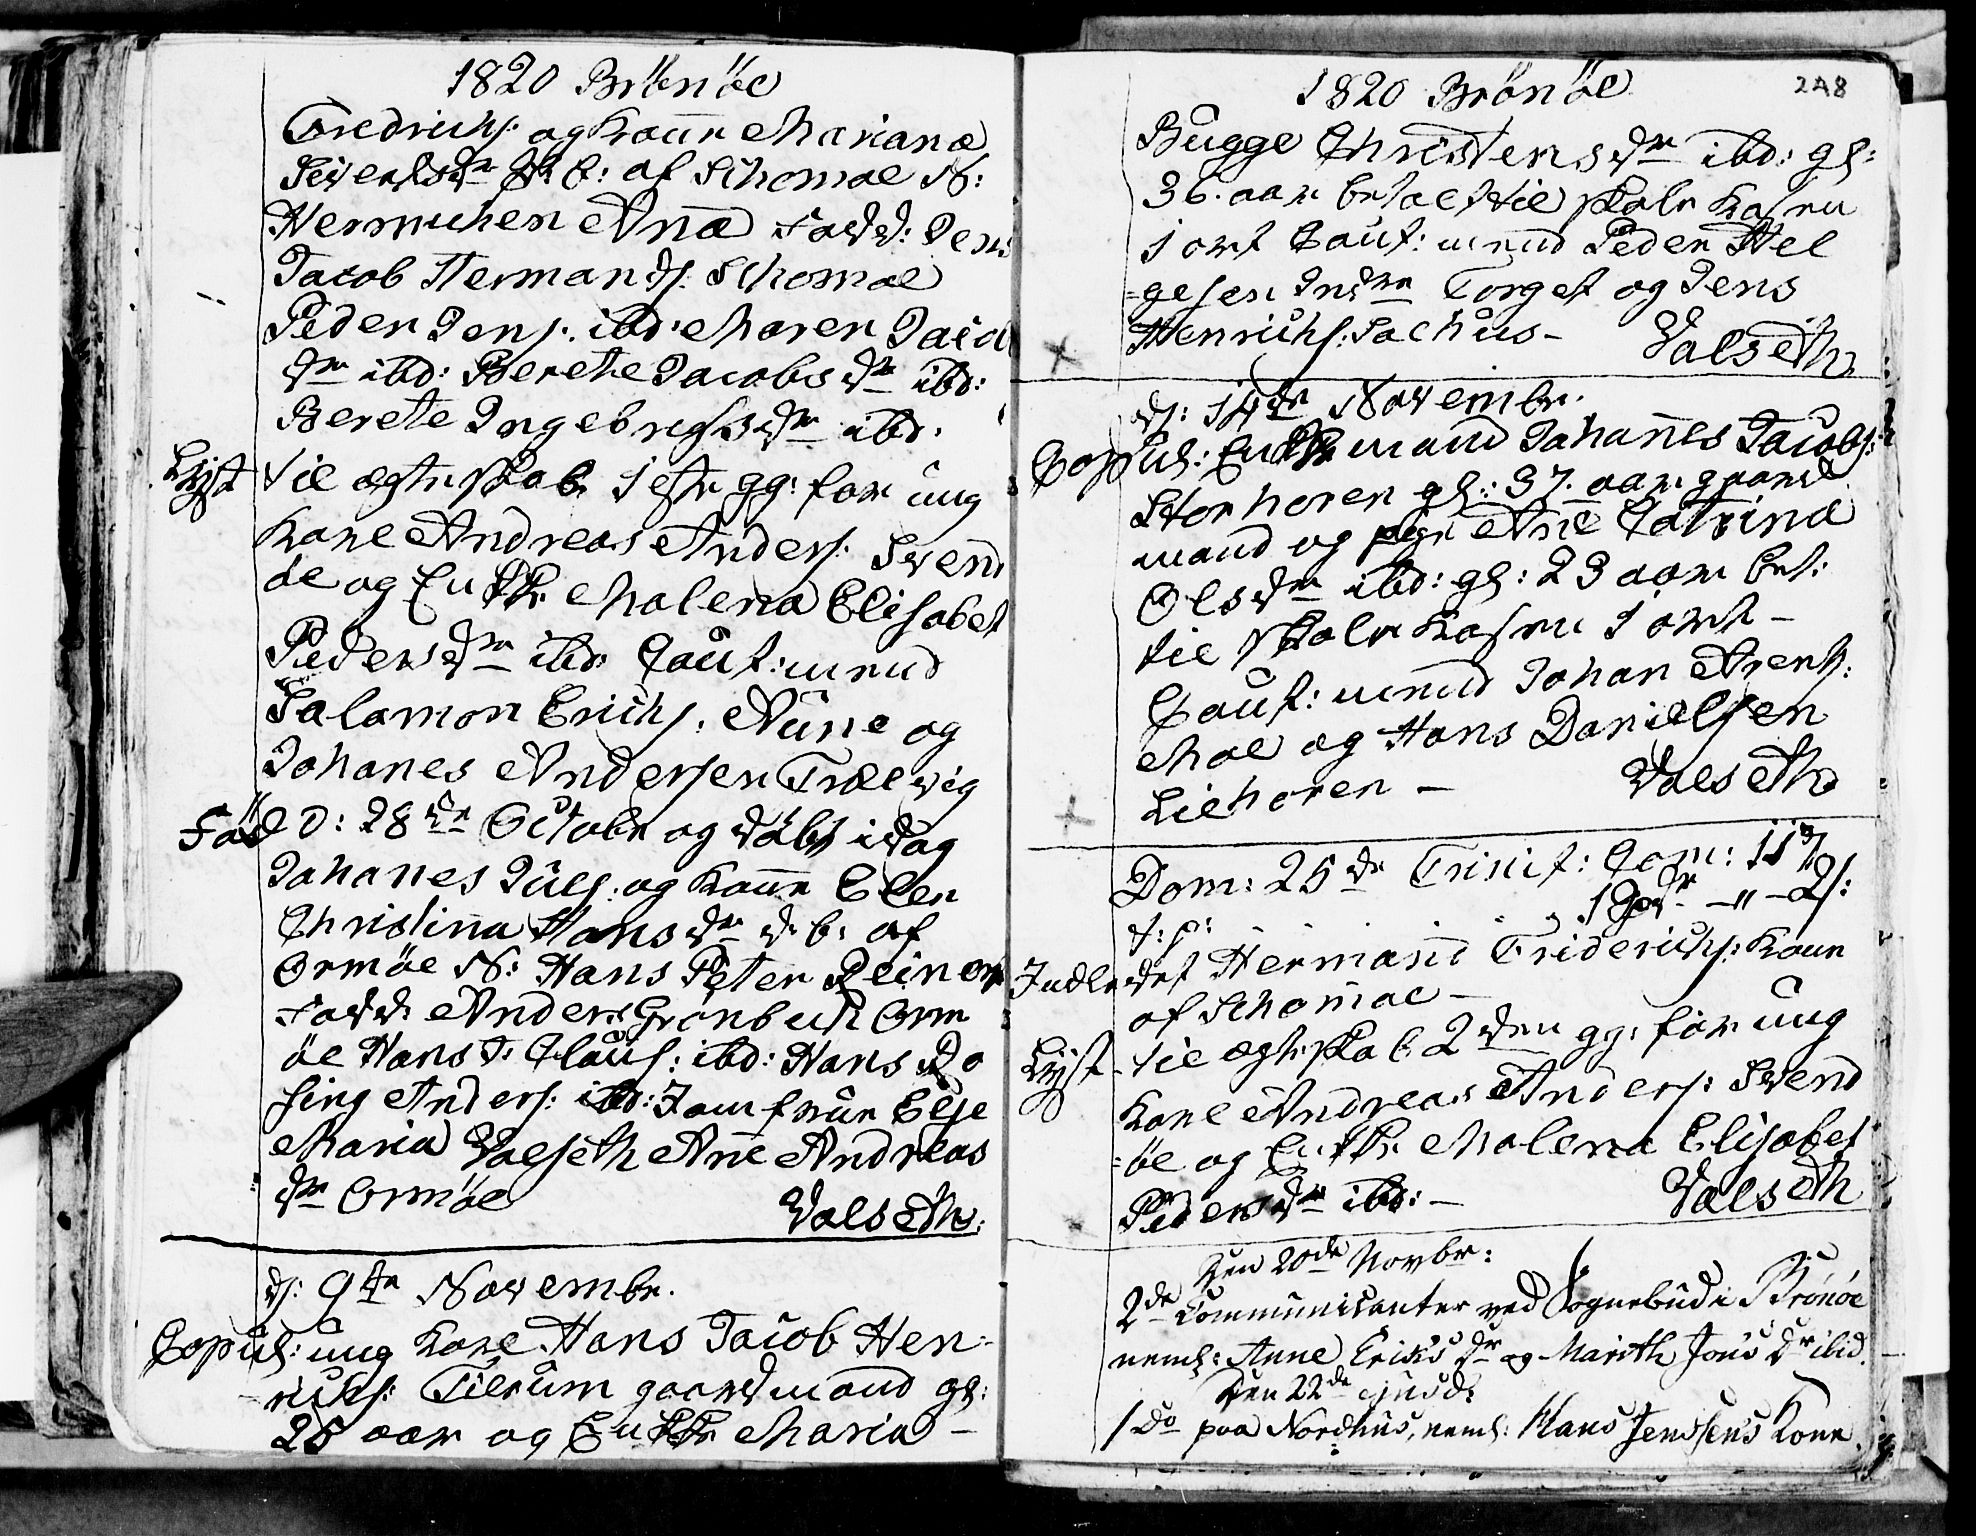 1820 Brönöe
Fredrichs: og Kone Mariana
Sivertsdr P: B: af Schomoe N:
Hermichen Ana Fadd: Jens
Jacob Hermands: Schomoe
Peder Jens: ibd: Maren Jacob
dr ibd: Berethe Jacobsdr ibd:
Berete Ingebrigtsdr ibd:
Lyst til ægteskab 1ste gg: for ung
Karl Andreas Anders: Svend
öe og Enke Malena Elisabet
Pedersdr ibd: Caut: mend
Salamon Erichs: Nüne og
Johanes Andersen Trælvig
Föd D: 28de Octobr og döbt idag
Johanes Juls: og Kone Elen
Christina Hansdr d: b: af
Ormöe N: Hans Peter Reinert
Fadd: Anders Grönbech Orm
öe Hans J: Claus: ibd: Hans Ro
sing Anders: ibd: Jomfrue Else
Maria Valseth Ane Andreas
dr Ormöe Valseth:
d: 9de Novembr.
Copul: ung Karl Hans Jacob Hen-
richs: Tilrum gaardmand gl:
25 aar og Enke Maria -
1820 Brönöe 248
Bugge Christensdr ibd: gl:
36. aar betalt til skole Kassen
1 ort Caut: mend Peder Hel
=gesen Indre Torget og Jens
Henrichs: Sachus - Valseth
d: 14de Novembr.
Copul: Enkemand Johannes Jacobs:
Storhoren gl: 37. aar gaard
mand og pge Ane Catrina
Olsdr ibd: gl: 23 aar bet:
til skole Kassen 1 ort -
Caut: mend Johan Arents:
Moe og Hans Danielsen
Liehoren - Valseth
Dom: 25de Trinit: Com: 117
1 - " - 2 s:
t: p:
Indledet Hermand Friderichs: Kone
af Schomoe -
Lyst til ægteskab 2den gg: for ung
Karl Andreas Anders: Svend
=öe og Enke Malena Elisabet
Pedersdr ibd: - Valseth
Den 20de Novbr:
2de Communicanter ved Sognebud i Brönöe
neml: Anne Eriks Dr og Marith Jons Dr ibid.
Den 22de ejusd:
1 Do paa Nordhus, neml: Hans Jenssens Kone.